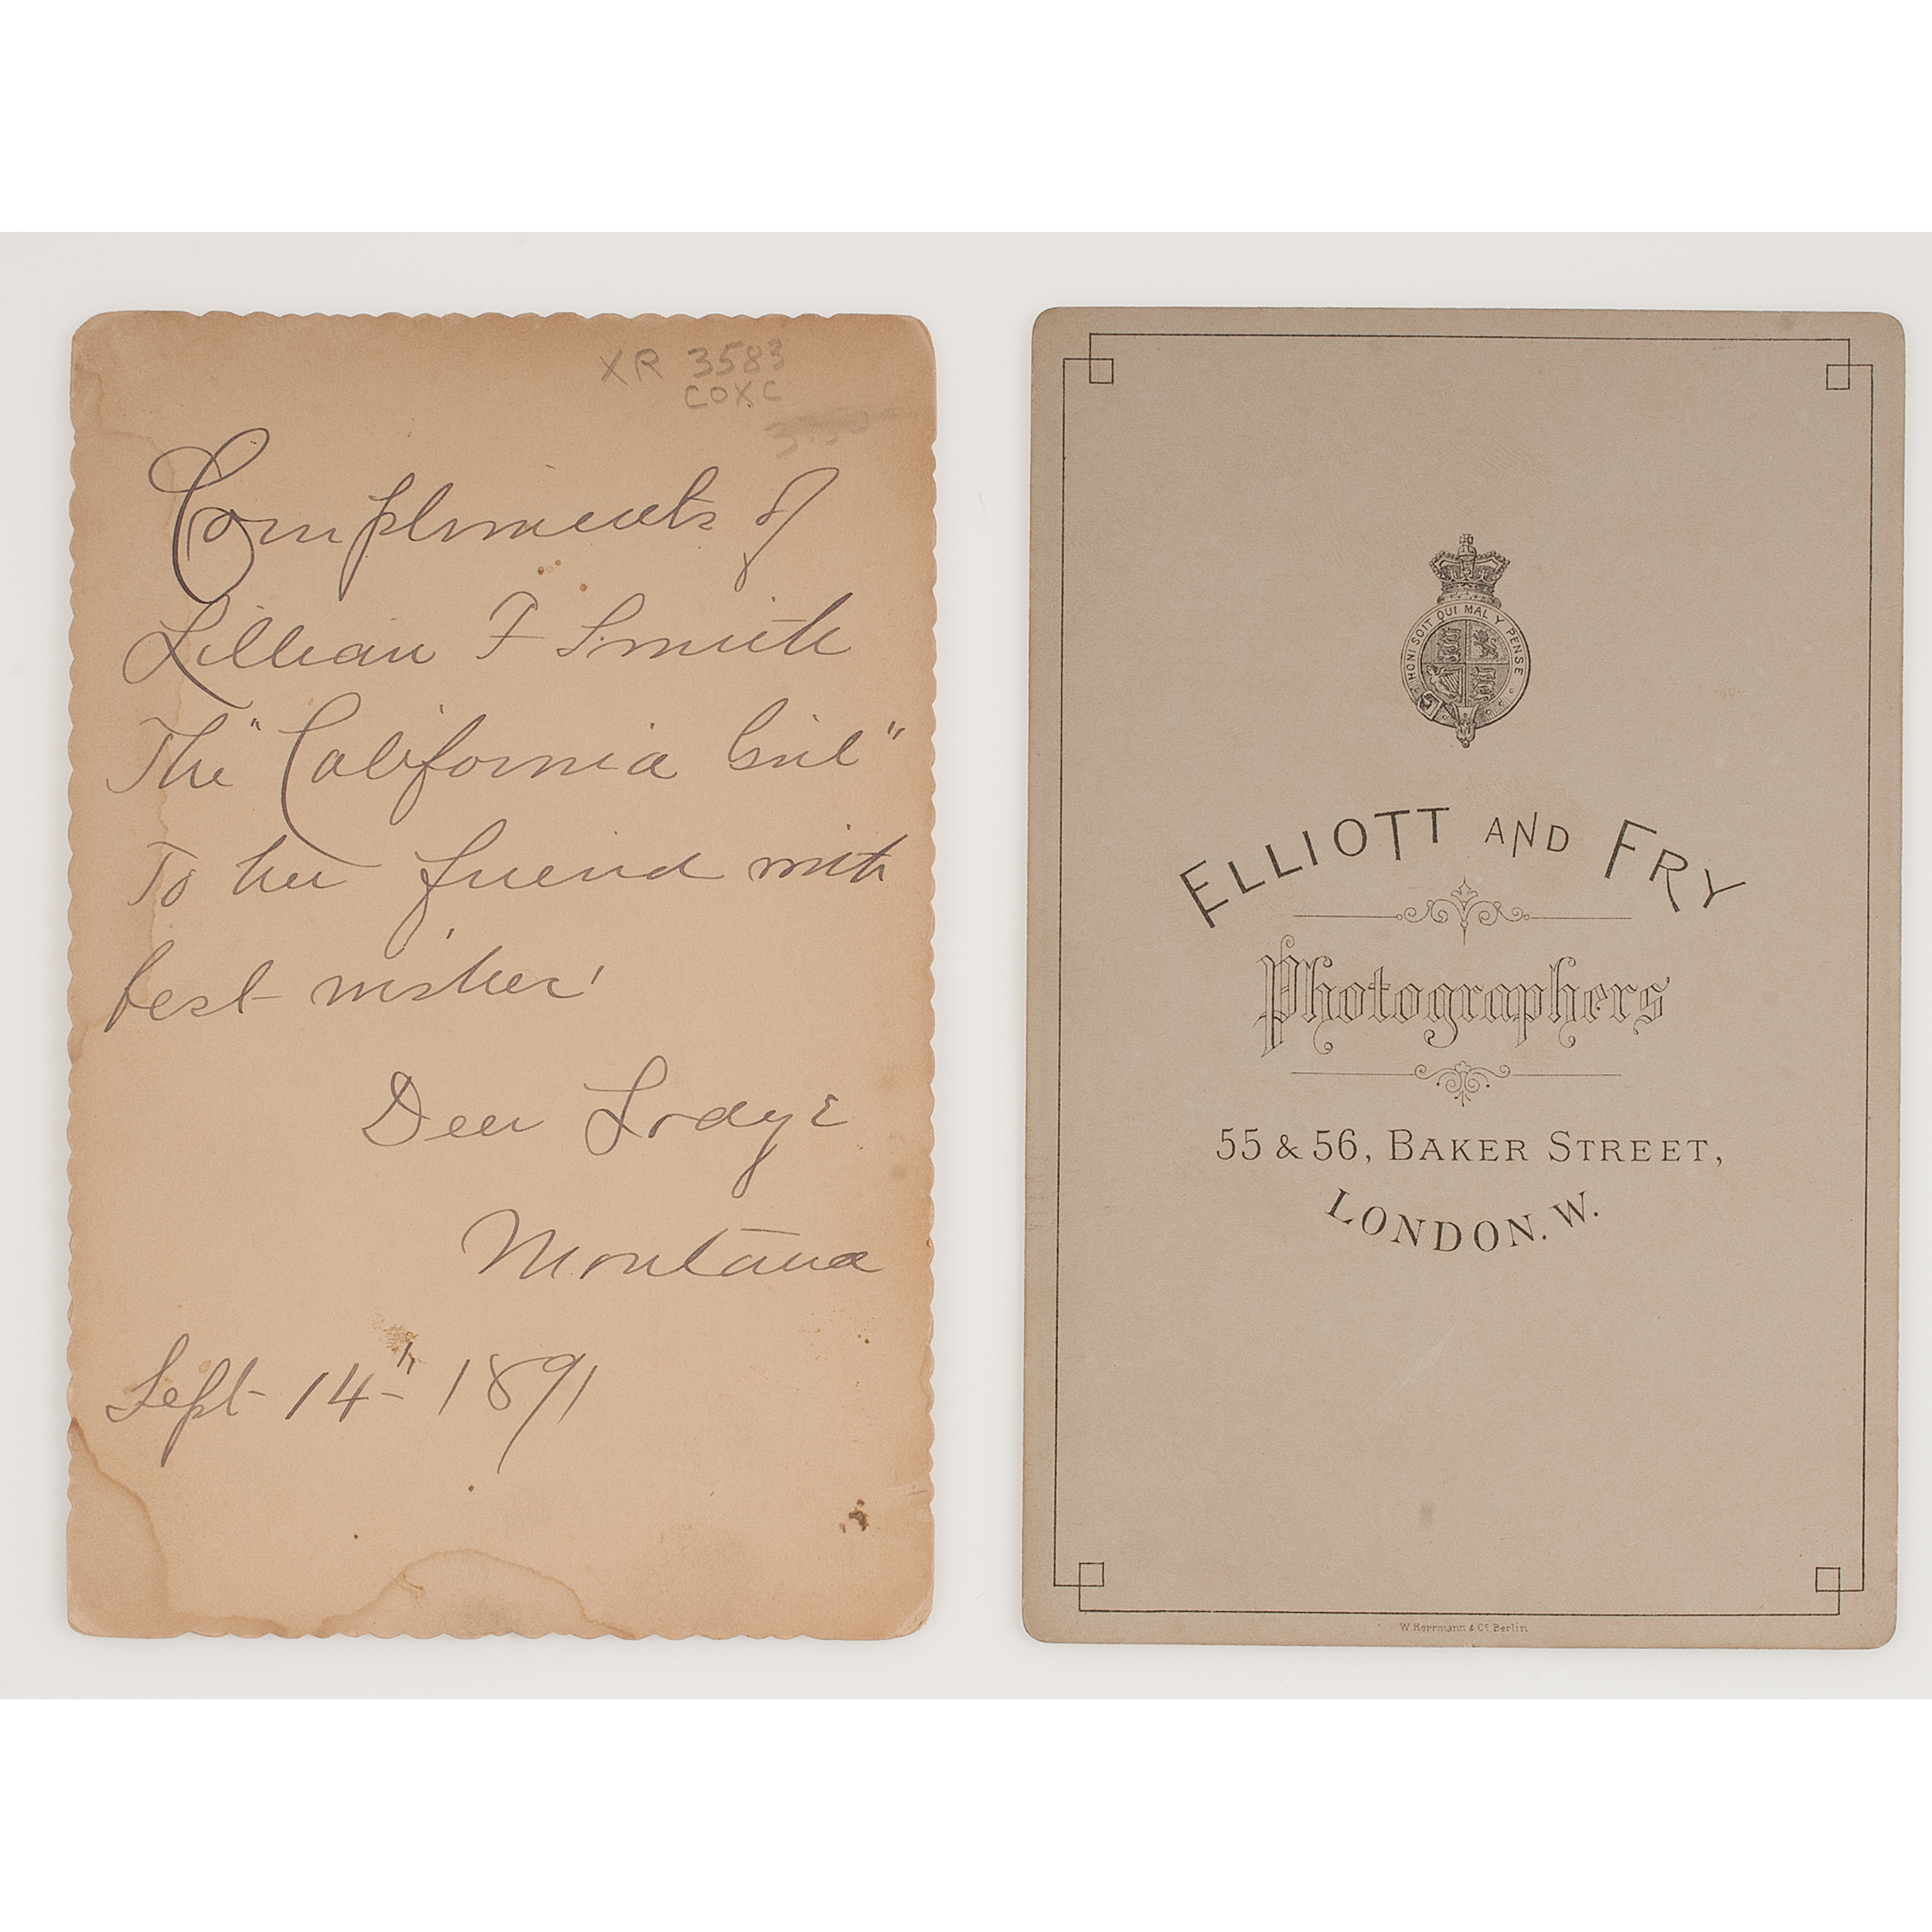 XR 3583
COXC
Compliments of
Lillian F Smith
The "California Girl"
To her friend with
best wishes
Deer Lodge
Montana
Sept 14th 1891
HONI SOIT QUI MAL Y PENSE
ELLIOTT AND FRY
Photographers
55 & 56, BAKER STREET,
LONDON. W.
W. Herrmann & Co. Berlin